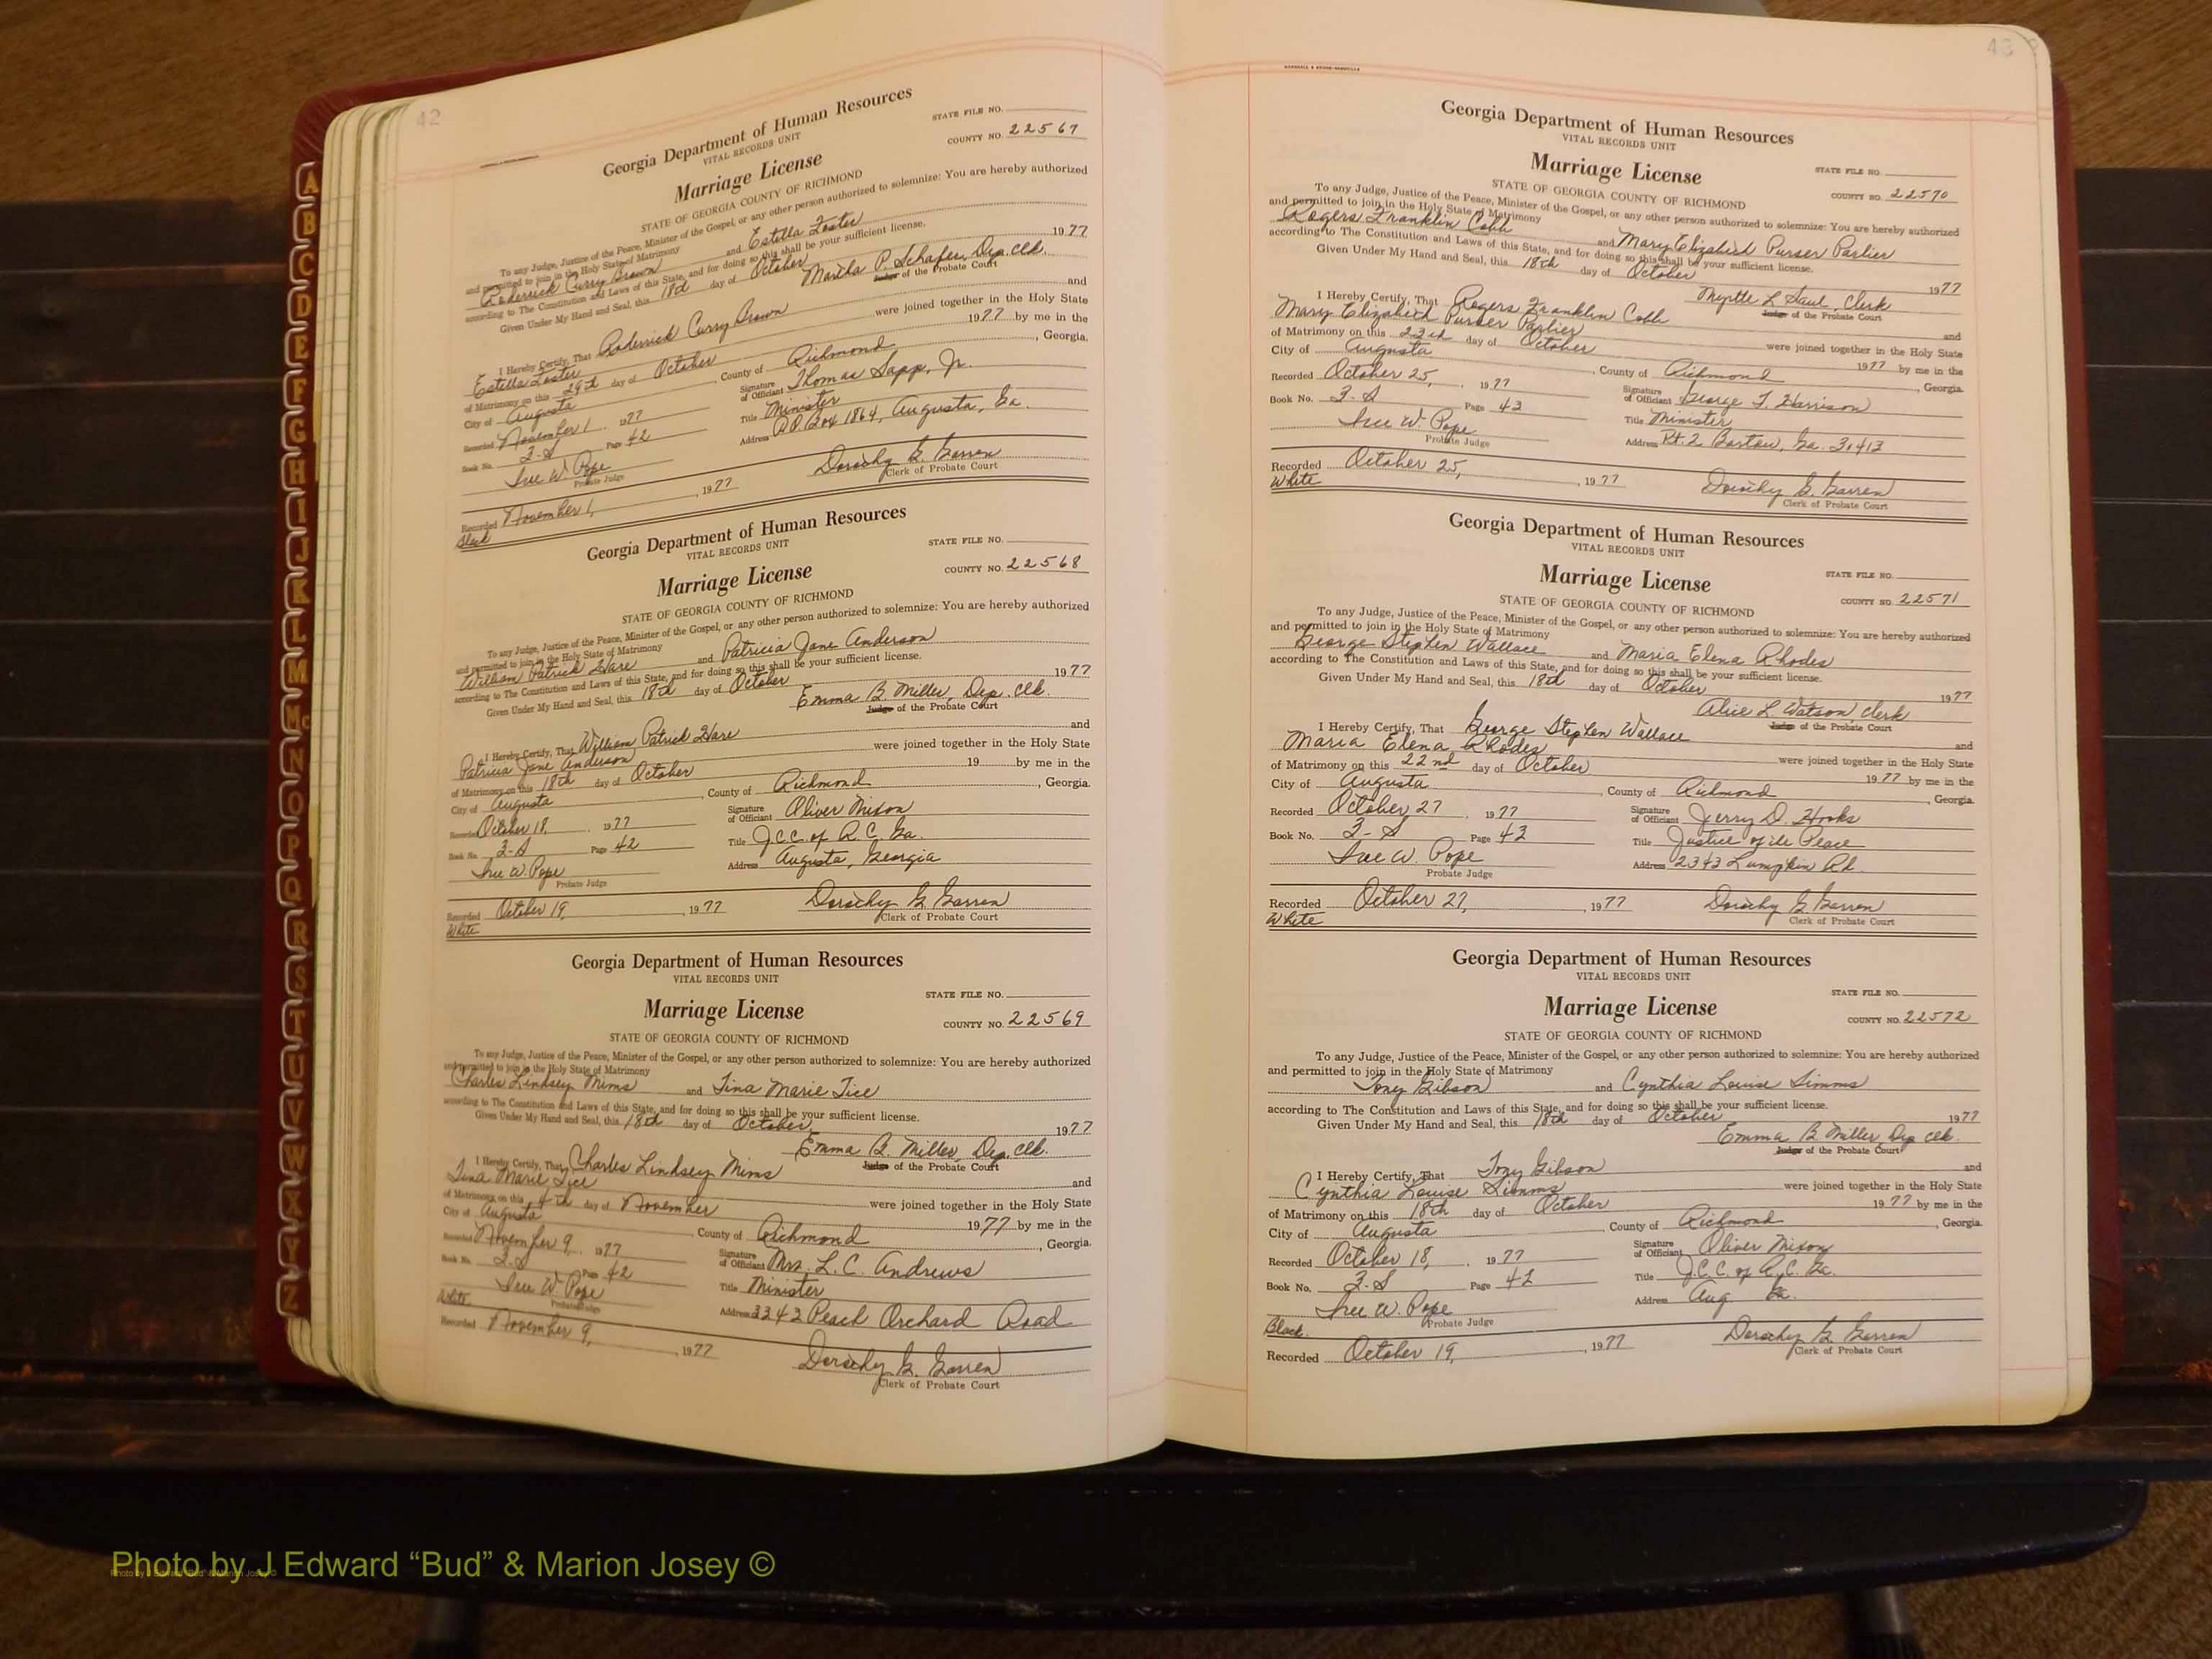 42
Georgia Department of Human Resources
VITAL RECORDS UNIT
STATE FILE NO.
Marriage License
COUNTY NO. 22567
STATE OF GEORGIA COUNTY OF RICHMOND
To any Judge, Justice of the Peace, Minister of the Gospel, or any other person authorized to solemnize: You are hereby authorized
and permitted to join in the Holy State of Matrimony
Roderrick Curry Brown and Estella Foster
according to The Constitution and Laws of this State, and for doing so this shall be your sufficient license.
Given Under My Hand and Seal, this 18th day of October 1977
Martha P. Schafer, Dep. Clk.
Judge of the Probate Court
I Hereby Certify, That Roderrick Curry Brown and
Estella Foster were joined together in the Holy State
of Matrimony on this 29th day of October 1977 by me in the
City of Augusta, County of Richmond, Georgia.
Recorded November 1, 1977 Signature of Officiant Thomas Sapp, Jr.
Book No. 3-S Page 42 Title Minister
Isee W. Pope Address P.O. Box 1864, Augusta, Ga.
Probate Judge
Dorothy G. Garren
Clerk of Probate Court
Recorded November 1, 1977
Black
Georgia Department of Human Resources
VITAL RECORDS UNIT
STATE FILE NO.
Marriage License
COUNTY NO. 22568
STATE OF GEORGIA COUNTY OF RICHMOND
To any Judge, Justice of the Peace, Minister of the Gospel, or any other person authorized to solemnize: You are hereby authorized
and permitted to join in the Holy State of Matrimony
William Patrick Hare and Patricia Jane Anderson
according to The Constitution and Laws of this State, and for doing so this shall be your sufficient license.
Given Under My Hand and Seal, this 18th day of October 1977
Emma B. Miller, Dep. Clk.
Judge of the Probate Court
I Hereby Certify, That William Patrick Hare and
Patricia Jane Anderson were joined together in the Holy State
of Matrimony on this 18th day of October 19 by me in the
City of Augusta, County of Richmond, Georgia.
Recorded October 18, 1977 Signature of Officiant Oliver Mixon
Book No. 3-S Page 42 Title J.C.C. of R.C. Ga.
W. Pope Address Augusta, Georgia
Probate Judge
Recorded October 19, 1977 Dorothy G. Garren
White Clerk of Probate Court
Georgia Department of Human Resources
VITAL RECORDS UNIT
STATE FILE NO.
Marriage License
COUNTY NO. 22569
STATE OF GEORGIA COUNTY OF RICHMOND
To any Judge, Justice of the Peace, Minister of the Gospel, or any other person authorized to solemnize: You are hereby authorized
and permitted to join in the Holy State of Matrimony
Charles Lindsey Mims and Tina Marie Tice
according to The Constitution and Laws of this State, and for doing so this shall be your sufficient license.
Given Under My Hand and Seal, this 18th day of October, 1977
Emma B. Miller, Dep. Clk.
Judge of the Probate Court
I Hereby Certify, That Charles Lindsey Mims and
Tina Marie Tice were joined together in the Holy State
of Matrimony on this 4th day of November 1977 by me in the
City of Augusta County of Richmond, Georgia.
Recorded November 9, 1977 Signature of Officiant Mrs. L. C. Andrews
Book No. 3-S Page 42 Title Minister
W. Pope Address 3343 Peach Orchard Road
Probate Judge
White
Recorded November 9, 1977 Dorothy G. Garren
Clerk of Probate Court
43
Georgia Department of Human Resources
VITAL RECORDS UNIT
STATE FILE NO.
Marriage License
COUNTY NO. 22570
STATE OF GEORGIA COUNTY OF RICHMOND
To any Judge, Justice of the Peace, Minister of the Gospel, or any other person authorized to solemnize: You are hereby authorized
and permitted to join in the Holy State of Matrimony
Rogers Franklin Cobb and Mary Elizabeth Purser Parlier
according to The Constitution and Laws of this State, and for doing so this shall be your sufficient license.
Given Under My Hand and Seal, this 18th day of October 1977
Myrtle L. Saul, Clerk
Judge of the Probate Court
I Hereby Certify, That Rogers Franklin Cobb and
Mary Elizabeth Purser Parlier were joined together in the Holy State
of Matrimony on this 23rd day of October 1977 by me in the
City of Augusta, County of Richmond, Georgia.
Recorded October 25, 1977 Signature of Officiant George T. Harrison
Book No. 3-S Page 43 Title Minister
W. Pope Address Rt. 2 Bartow, Ga. 30413
Probate Judge
Recorded October 25, 1977 Dorothy G. Garren
White Clerk of Probate Court
Georgia Department of Human Resources
VITAL RECORDS UNIT
STATE FILE NO.
Marriage License
COUNTY NO. 22571
STATE OF GEORGIA COUNTY OF RICHMOND
To any Judge, Justice of the Peace, Minister of the Gospel, or any other person authorized to solemnize: You are hereby authorized
and permitted to join in the Holy State of Matrimony
George Stephen Wallace and Maria Elena Rhodes
according to The Constitution and Laws of this State, and for doing so this shall be your sufficient license.
Given Under My Hand and Seal, this 18th day of October 1977
Alice L. Watson, Clerk
Judge of the Probate Court
I Hereby Certify, That George Stephen Wallace and
Maria Elena Rhodes were joined together in the Holy State
of Matrimony on this 22nd day of October 1977 by me in the
City of Augusta, County of Richmond, Georgia.
Recorded October 27, 1977 Signature of Officiant Jerry D. Hooks
Book No. 3-S Page 43 Title Justice of the Peace
W. Pope Address 2343 Lumpkin Rd.
Probate Judge
Recorded October 27, 1977 Dorothy G. Garren
White Clerk of Probate Court
Georgia Department of Human Resources
VITAL RECORDS UNIT
STATE FILE NO.
Marriage License
COUNTY NO. 22572
STATE OF GEORGIA COUNTY OF RICHMOND
To any Judge, Justice of the Peace, Minister of the Gospel, or any other person authorized to solemnize: You are hereby authorized
and permitted to join in the Holy State of Matrimony
Tony Gibson and Cynthia Louise Simms
according to The Constitution and Laws of this State, and for doing so this shall be your sufficient license.
Given Under My Hand and Seal, this 18th day of October 1977
Emma B. Miller, Dep. Clk.
Judge of the Probate Court
I Hereby Certify, That Tony Gibson and
Cynthia Louise Simms were joined together in the Holy State
of Matrimony on this 18th day of October 1977 by me in the
City of Augusta County of Richmond, Georgia.
Recorded October 18, 1977 Signature of Officiant Oliver Mixon
Book No. 3-S Page 42 Title J.C.C. of R.C. Ga.
W. Pope Address Aug Ga.
Probate Judge
Black
Recorded October 19, 1977 Dorothy G. Garren
Clerk of Probate Court
A
B
C
D
E
F
G
H
I
J
K
L
M
Mc
N
O
P
Q
R
S
T
U
V
W
X
Y
Z
Photo by J Edward “Bud” & Marion Josey ©